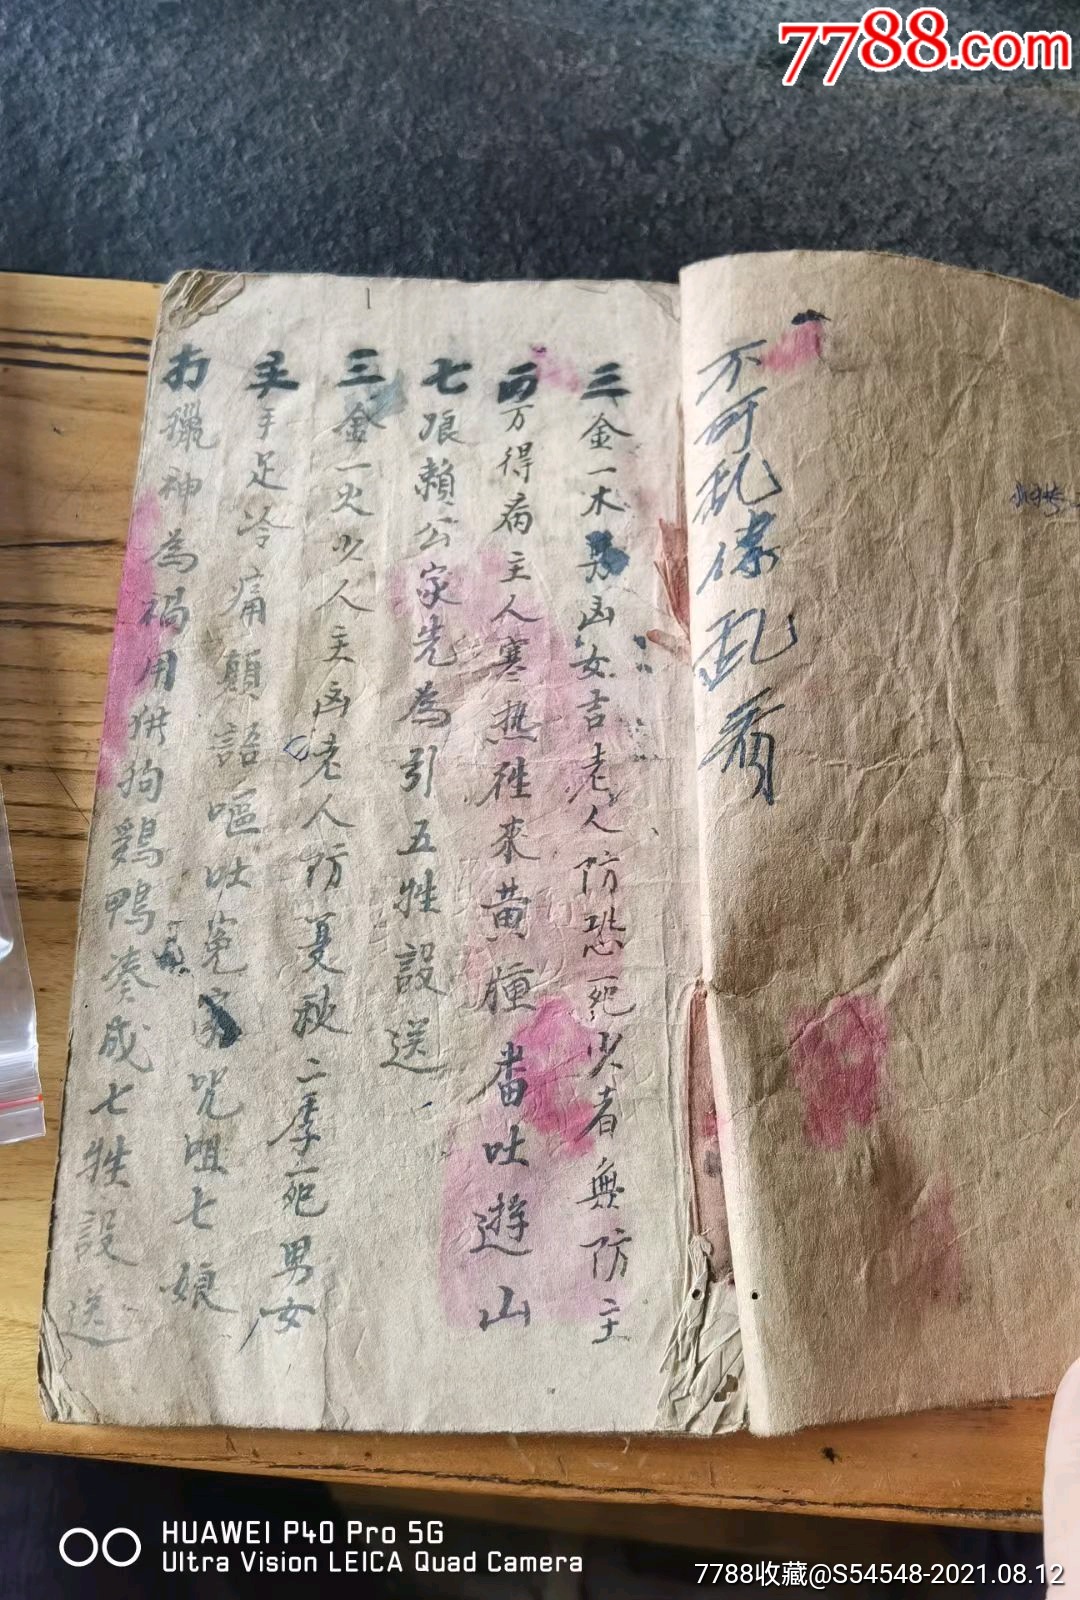 7788.com
不可乱傳乱看
三金一木男凶女吉老人防恐死少者無防主
西方得病主人寒热徃來黄瘇番吐遊山
七娘賴公家先為引五牲設送
三金一火少人主凶老人防夏秋二季死男女
手足冷痛顛語嘔吐冤家咒咀七娘
獵神為禍用供狗鷄鴨凑成七牲設送
HUAWEI P40 Pro 5G
Ultra Vision LEICA Quad Camera
7788收藏@S54548-2021.08.12